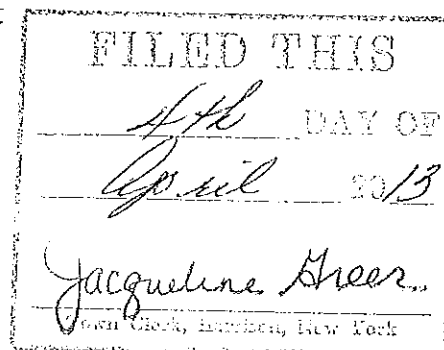 FILED THIS
4th DAY OF
April 2013
Jacqueline Greer
Town Clerk, New York